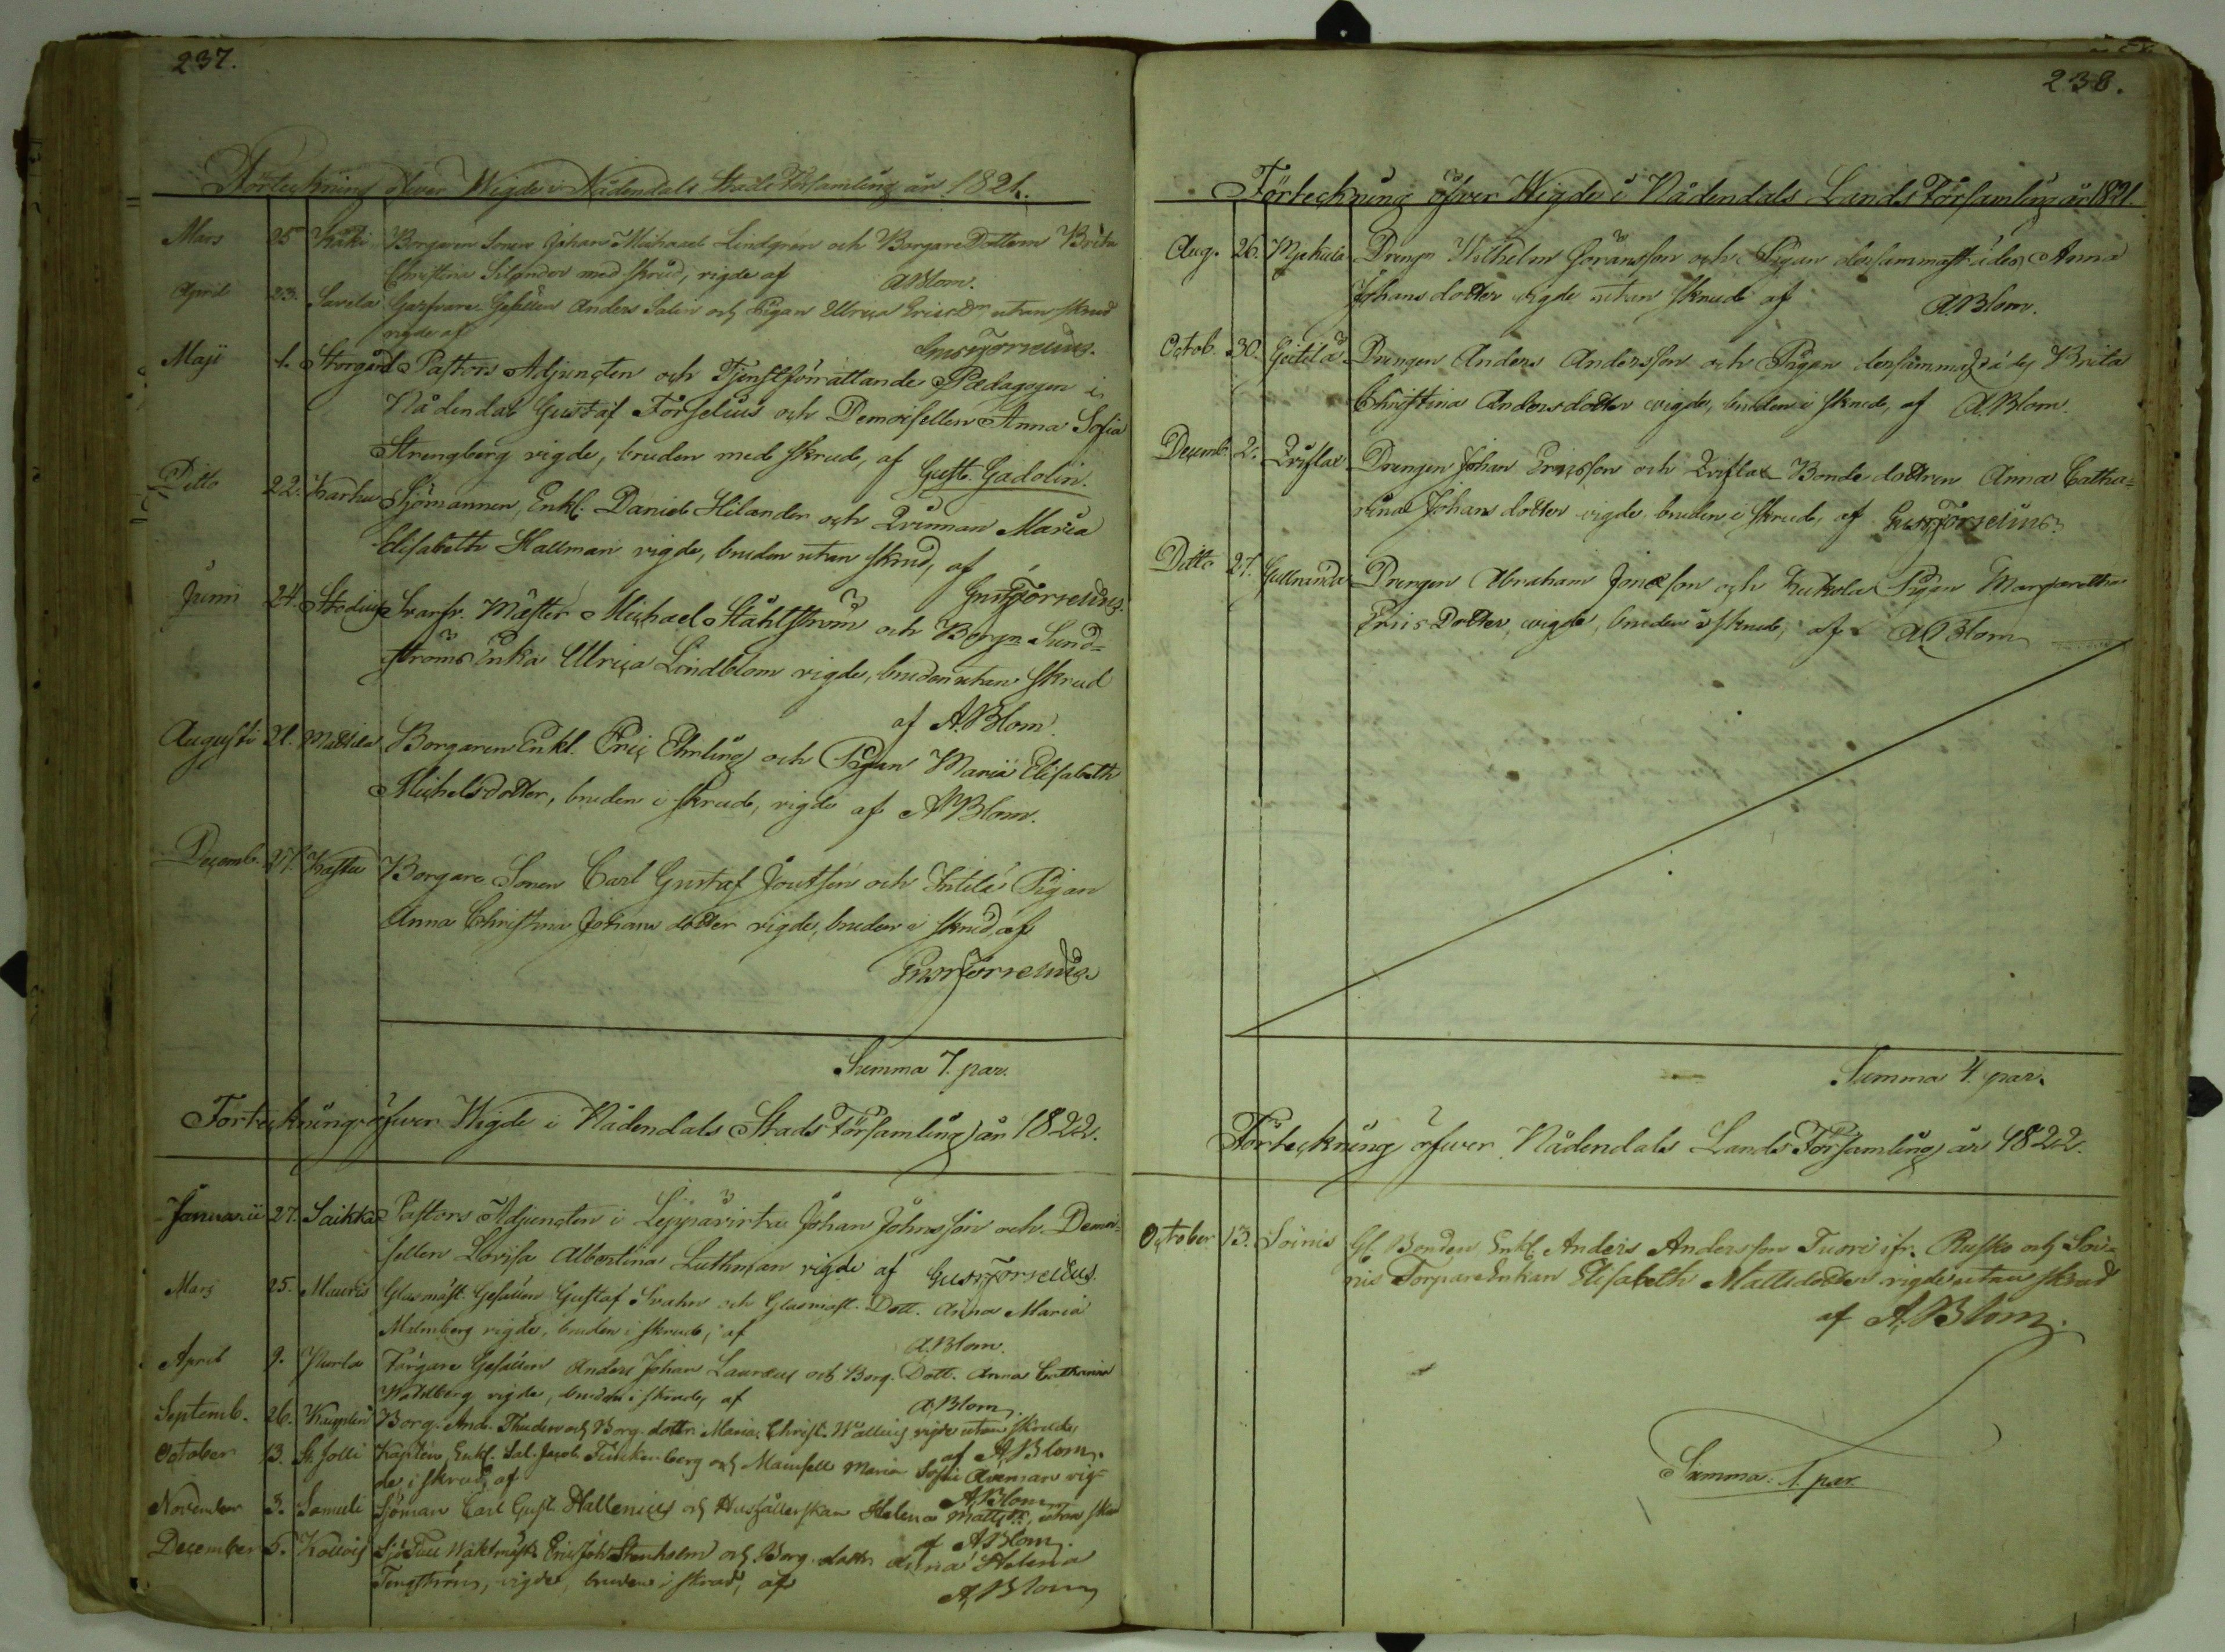 237.
Förteckning öfwer Wigde i Nådendals Stads Församling år 1821.
Mars 25 Käki Borgaren Sonen Johan Michael Lindgrén och Borgare Dottern Brita
Christina Silander med skrud, vigde af A Blom.
April 23. Savela Garfvare Gesällen Anders Salin och Pigan Ulrica Ericsdr utan skrud
vigde af Gust Forselius.
Maji 1. Storgård Pastors Adjuncten och Tjenstförrättande Pædagogen i
Nådendal Gustaf Forselius och Demoisellen Anna Sofia
Strengberg vigde, bruden med skrud, af Gust. Gadolin.
Ditto 22. Karhu Sjömannen, Enkl. Daniel Hilander och Qvinnan Maria
Elisabeth Hallman vigde, bruden utan skrud, af
Gust Forselius.
Junii 24. Stodius Svarfv. Mäster Michael Ståhlström och Borgn Sund=
ströms Enka Ulrica Lindblom vigde, bruden utan skrud
af A. Blom.
Augusti 21. Mattila Borgaren Enkl. Eric Ehrling och Pigan Maria Elisabeth
Michelsdotter, bruden i skrud, vigde af A Blom.
Decemb. 27. Kasta Borgare Sonen Carl Gustaf Joutsén och Pigan
Anna Christina Johans dotter vigde, bruden i skrud, af
Gust Forselius.
Summa 7. par.
Förteckning öfwer Wigde i Nådendals Stads Församling år 1822.
Januarii 27. Saikka Pastors Adjuncten i Leppävirta Johan Johnsson och Demoi=
sellen Lovisa Albertina Luthman vigde af Gust Forselius.
Mars 25. Mauris Glasmäst. Gesällen Gustaf Svahn och Glasmäst. Dott. Anna Maria
Malmberg vigde, bruden i skrud, af A. Blom.
April 9. Färgare Gesällen Anders Johan Lauræus och Borg. Dott. Anna Catharina
Wahlberg vigde, bruden i skrud, af A. Blom.
Septemb. 26. Borg. And. Thuder och Borg. dottr Maria Christ. Wallius vigde utan skrud,
af A. Blom.
October 13. St. Jolli Kapten, Enkl. Sal. Jacob Finkenberg och Mamsell Maria Sofia Åkerman vig=
de, i skrud, af A. Blom
November 3. Samuli Sjöman Carl Gust. Hallenius och Hushållerskan Helena Mattsdr, utan skrud
af A Blom.
December 5. Sjö Tull Waktmäst. Eric Joh. Stenholm och Borg. dottr Anna Helena
Tengström, vigde, bruden i skrud, af A, Blom
238.
Förteckning öfver Wigde i Nådendals Lands Församling år 1821.
Aug. 26. Drengn Wilhelm Göransson och Pigan dersammastädes Anna
Johans dotter vigde utan skrud af A. Blom.
Octob. 30. Geitilä Drengen Anders Andersson och Pigan dersammastädes Brita
Christina Andersdotter vigde, bruden i skrud, af A. Blom.
Decemb. 2. Qviflax Drengen Johan Ericsson och Qviflax Bonde dottren Anna Catha=
rina Johans dotter vigde, bruden i skrud, af Gust Forselius.
Ditto 27. Gullranda Drengen Abraham Jonasson och Kukola Pigan Margaretha
Erics Dotter, vigde, bruden i skrud, af A. Blom
Summa 4. par.
Förteckning öfwer Nådendals Lands Församling år 1822.
October 13. Soinis Gl. Bonden Enkl. Anders Andersson Tuori ifr. Rusko och Soi=
nis Torpare Enkan Elisabeth Mattsdotter vigde utan skrud
af A. Blom.
Summa: 1 par.